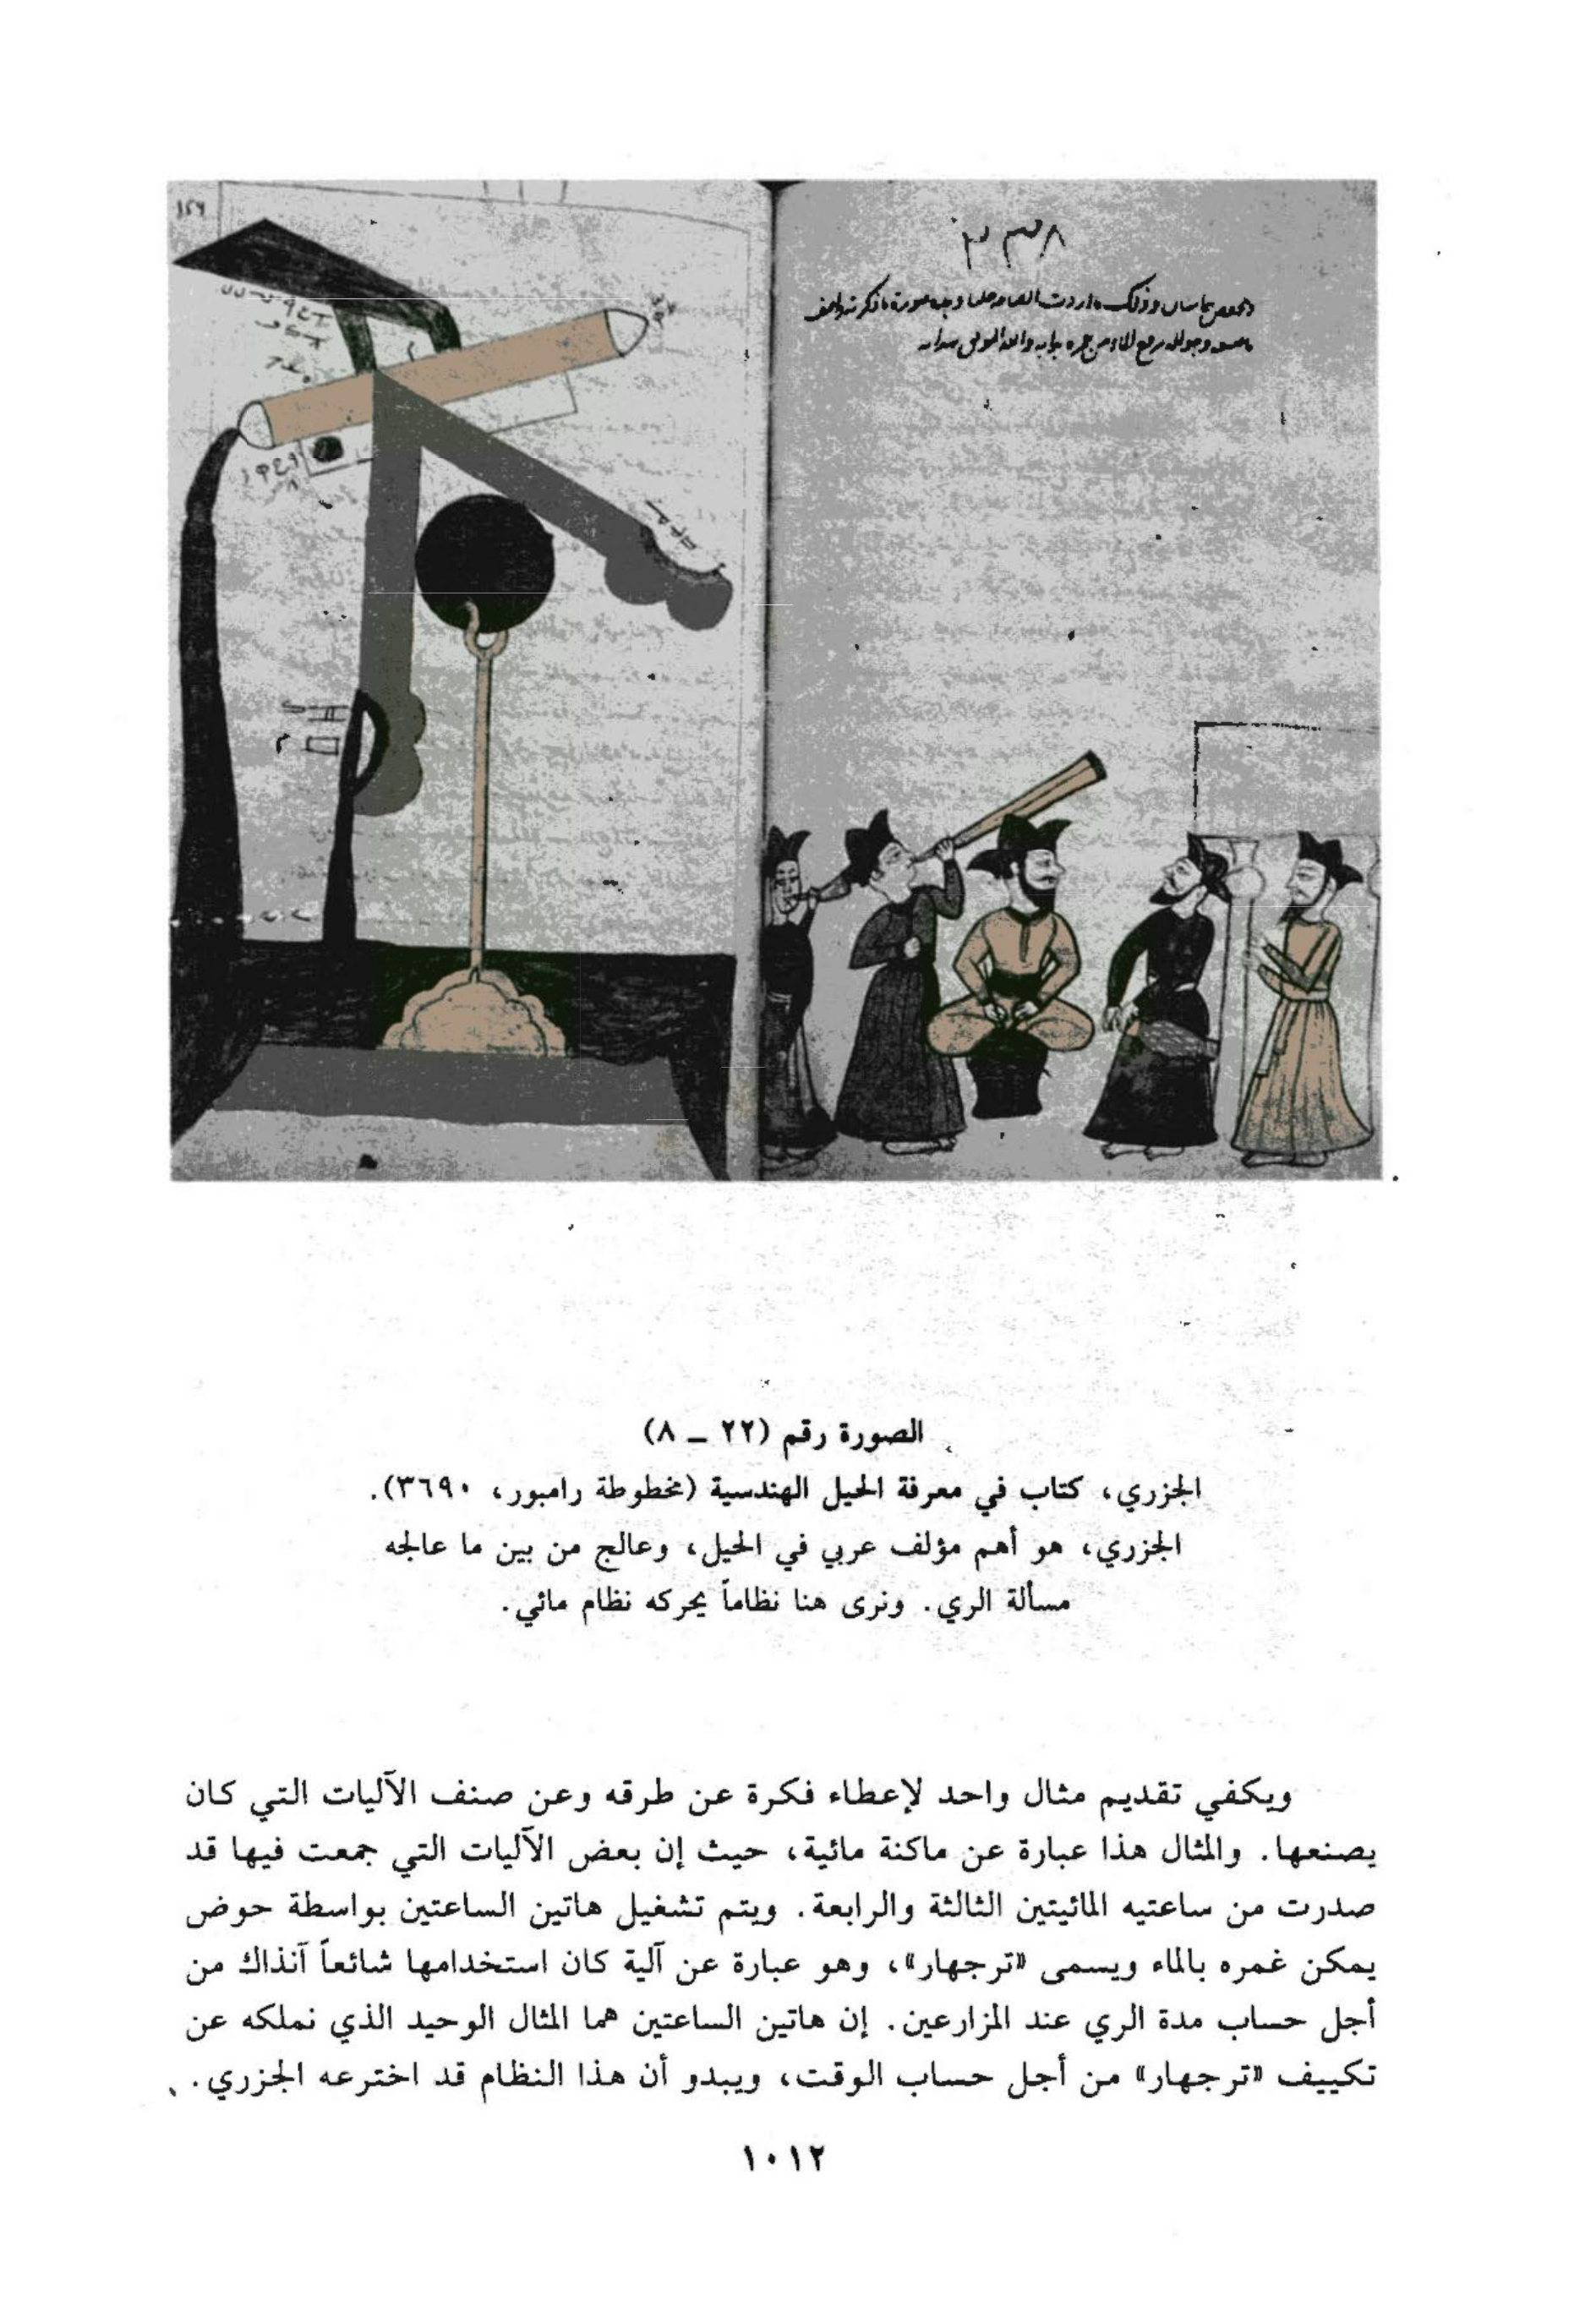 ٣٣٨
الصورة رقم (٢٢ ــ ٨)
الجزري، كتاب في معرفة الحيل الهندسية (مخطوطة رامبور، ٣٦٩٠).
الجزري، هو أهم مؤلف عربي في الحيل، وعالج من بين ما عالجه
مسألة الري. ونرى هنا نظاماً يحركه نظام مائي.
ويكفي تقديم مثال واحد لإعطاء فكرة عن طرقه وعن صنف الآليات التي كان
يصنعها. والمثال هذا عبارة عن ماكنة مائية، حيث إن بعض الآليات التي جمعت فيها قد
صدرت من ساعتيه المائيتين الثالثة والرابعة. ويتم تشغيل هاتين الساعتين بواسطة حوض
يمكن غمره بالماء ويسمى «ترجهار»، وهو عبارة عن آلية كان استخدامها شائعاً آنذاك من
أجل حساب مدة الري عند المزارعين. إن هاتين الساعتين هما المثال الوحيد الذي نملكه عن
تكييف «ترجهار» من أجل حساب الوقت، ويبدو أن هذا النظام قد اخترعه الجزري.
١٠١٢